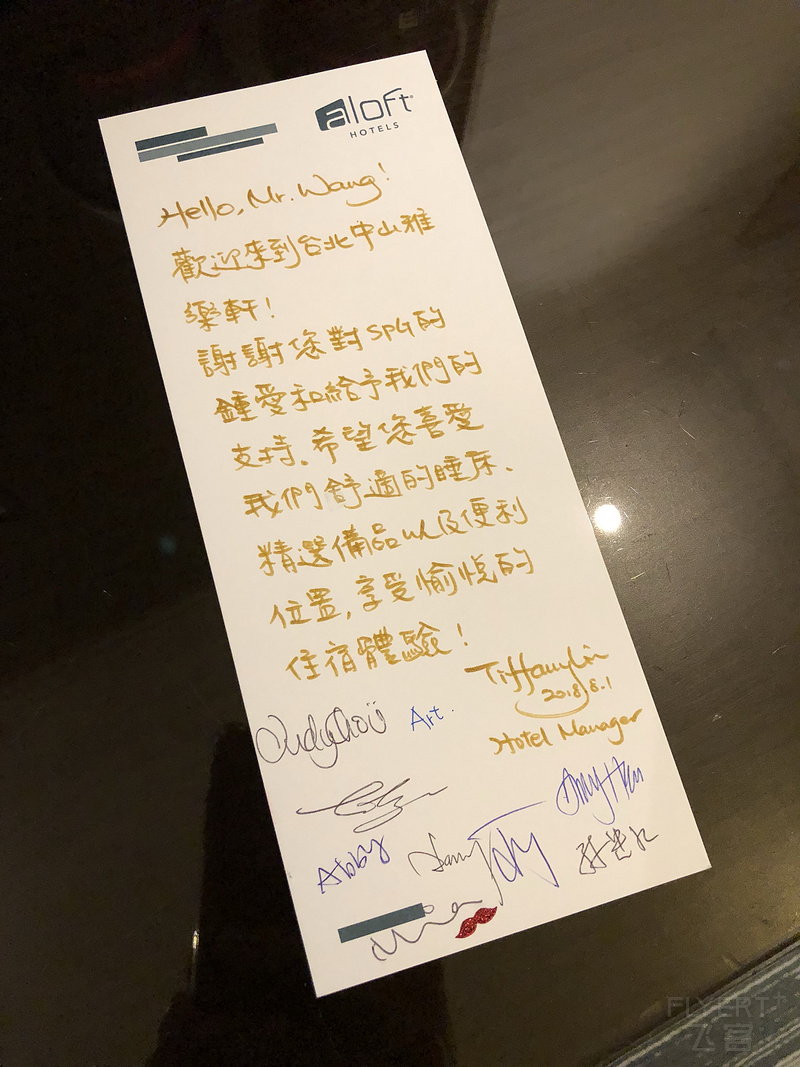 aloft
HOTELS
Hello, Mr. Wang!
歡迎來到台北中山雅
樂軒!
謝謝您對SPG的
鍾愛和給予我們的
支持、希望您喜愛
我們舒適的睡床、
精選備品以及便利
位置,享受愉悅的
住宿體驗!
Tiffany Lin
2018.8.1
Hotel Manager
Judy Chou
Art.
Abby
FLYERT
飞客